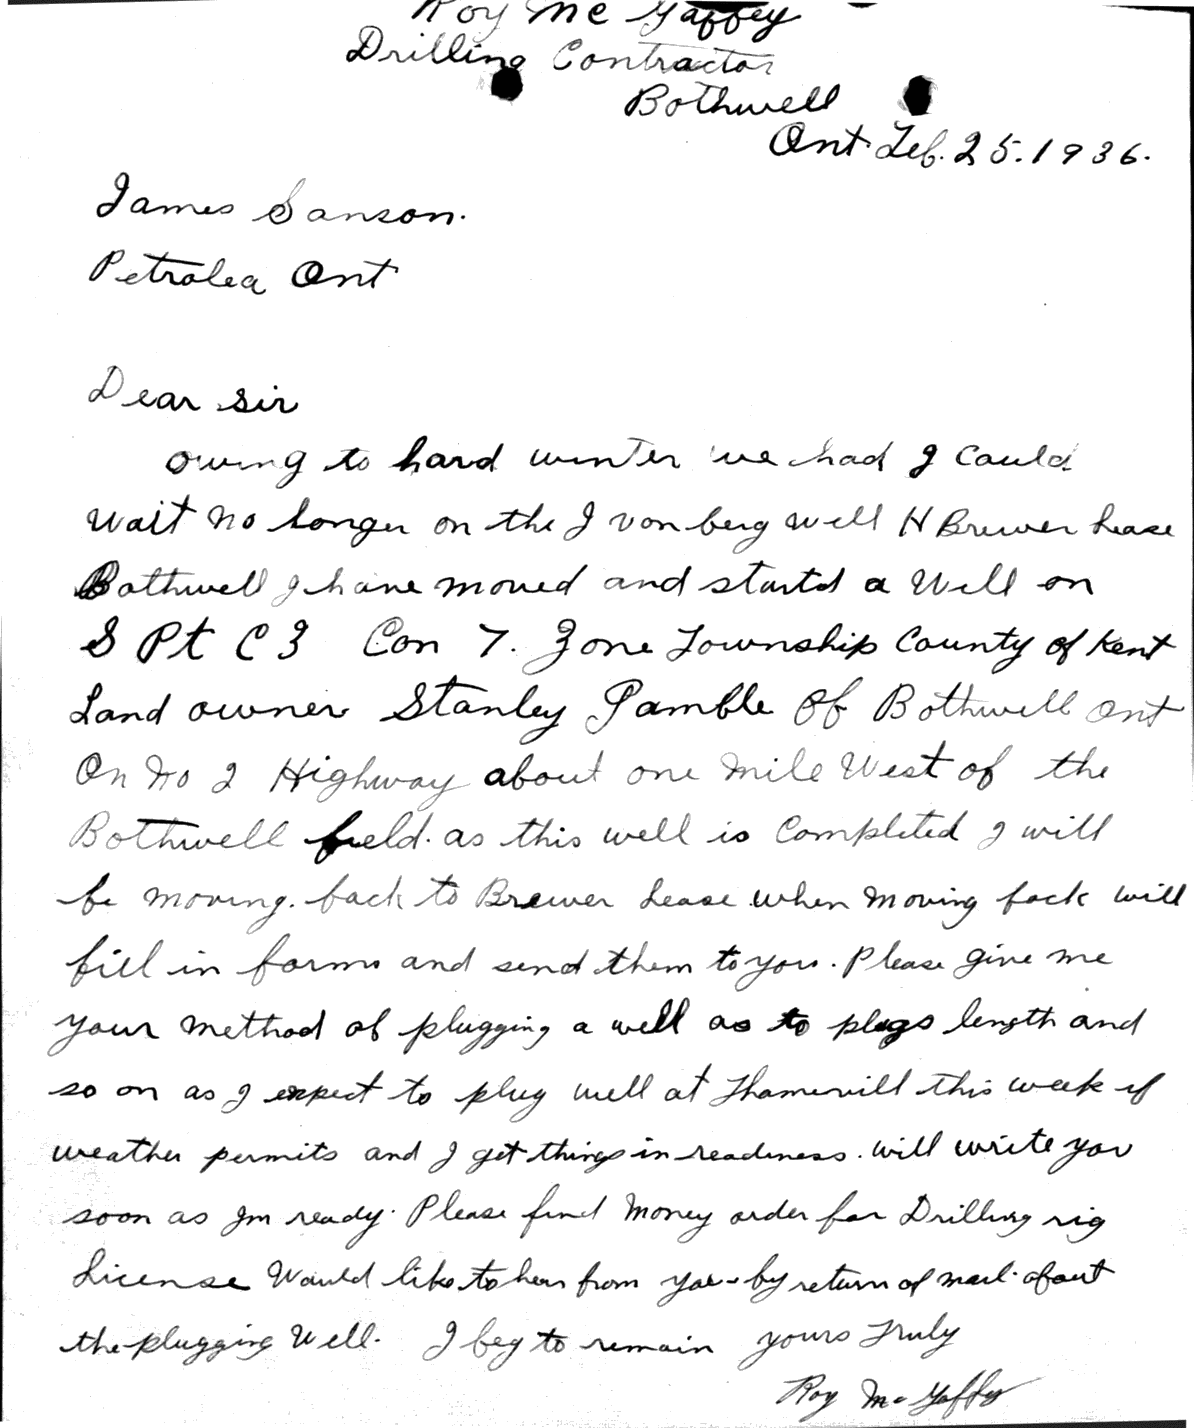 Roy Mc Gaffey
Drilling Contractor
Bothwell
Ont Feb. 25. 1936.
James Sanson.
Petrolea Ont
Dear Sir
owing to hard winter we had I could
wait no longer on the J von berg well H Brewer Lease
Bothwell I have moved and startd a well on
S Pt C 3 Con 7. Zone Township County of Kent
Land owner Stanley Gamble of Bothwell Ont
On No 2 Highway about one mile West of the
Bothwell field. as this well is completed I will
be moving. back to Brewer Lease when moving back will
fill in forms and send them to you. Please give me
your method of plugging a well as to plugs length and
so on as I expect to plug well at Thamesvill this week if
weather permits and I get things in readiness. will write you
soon as Im ready. Please find Money order for Drilling rig
License Would like to hear from you by return of mail. about
the plugging Well. I beg to remain yours Truly
Roy Mc Gaffey